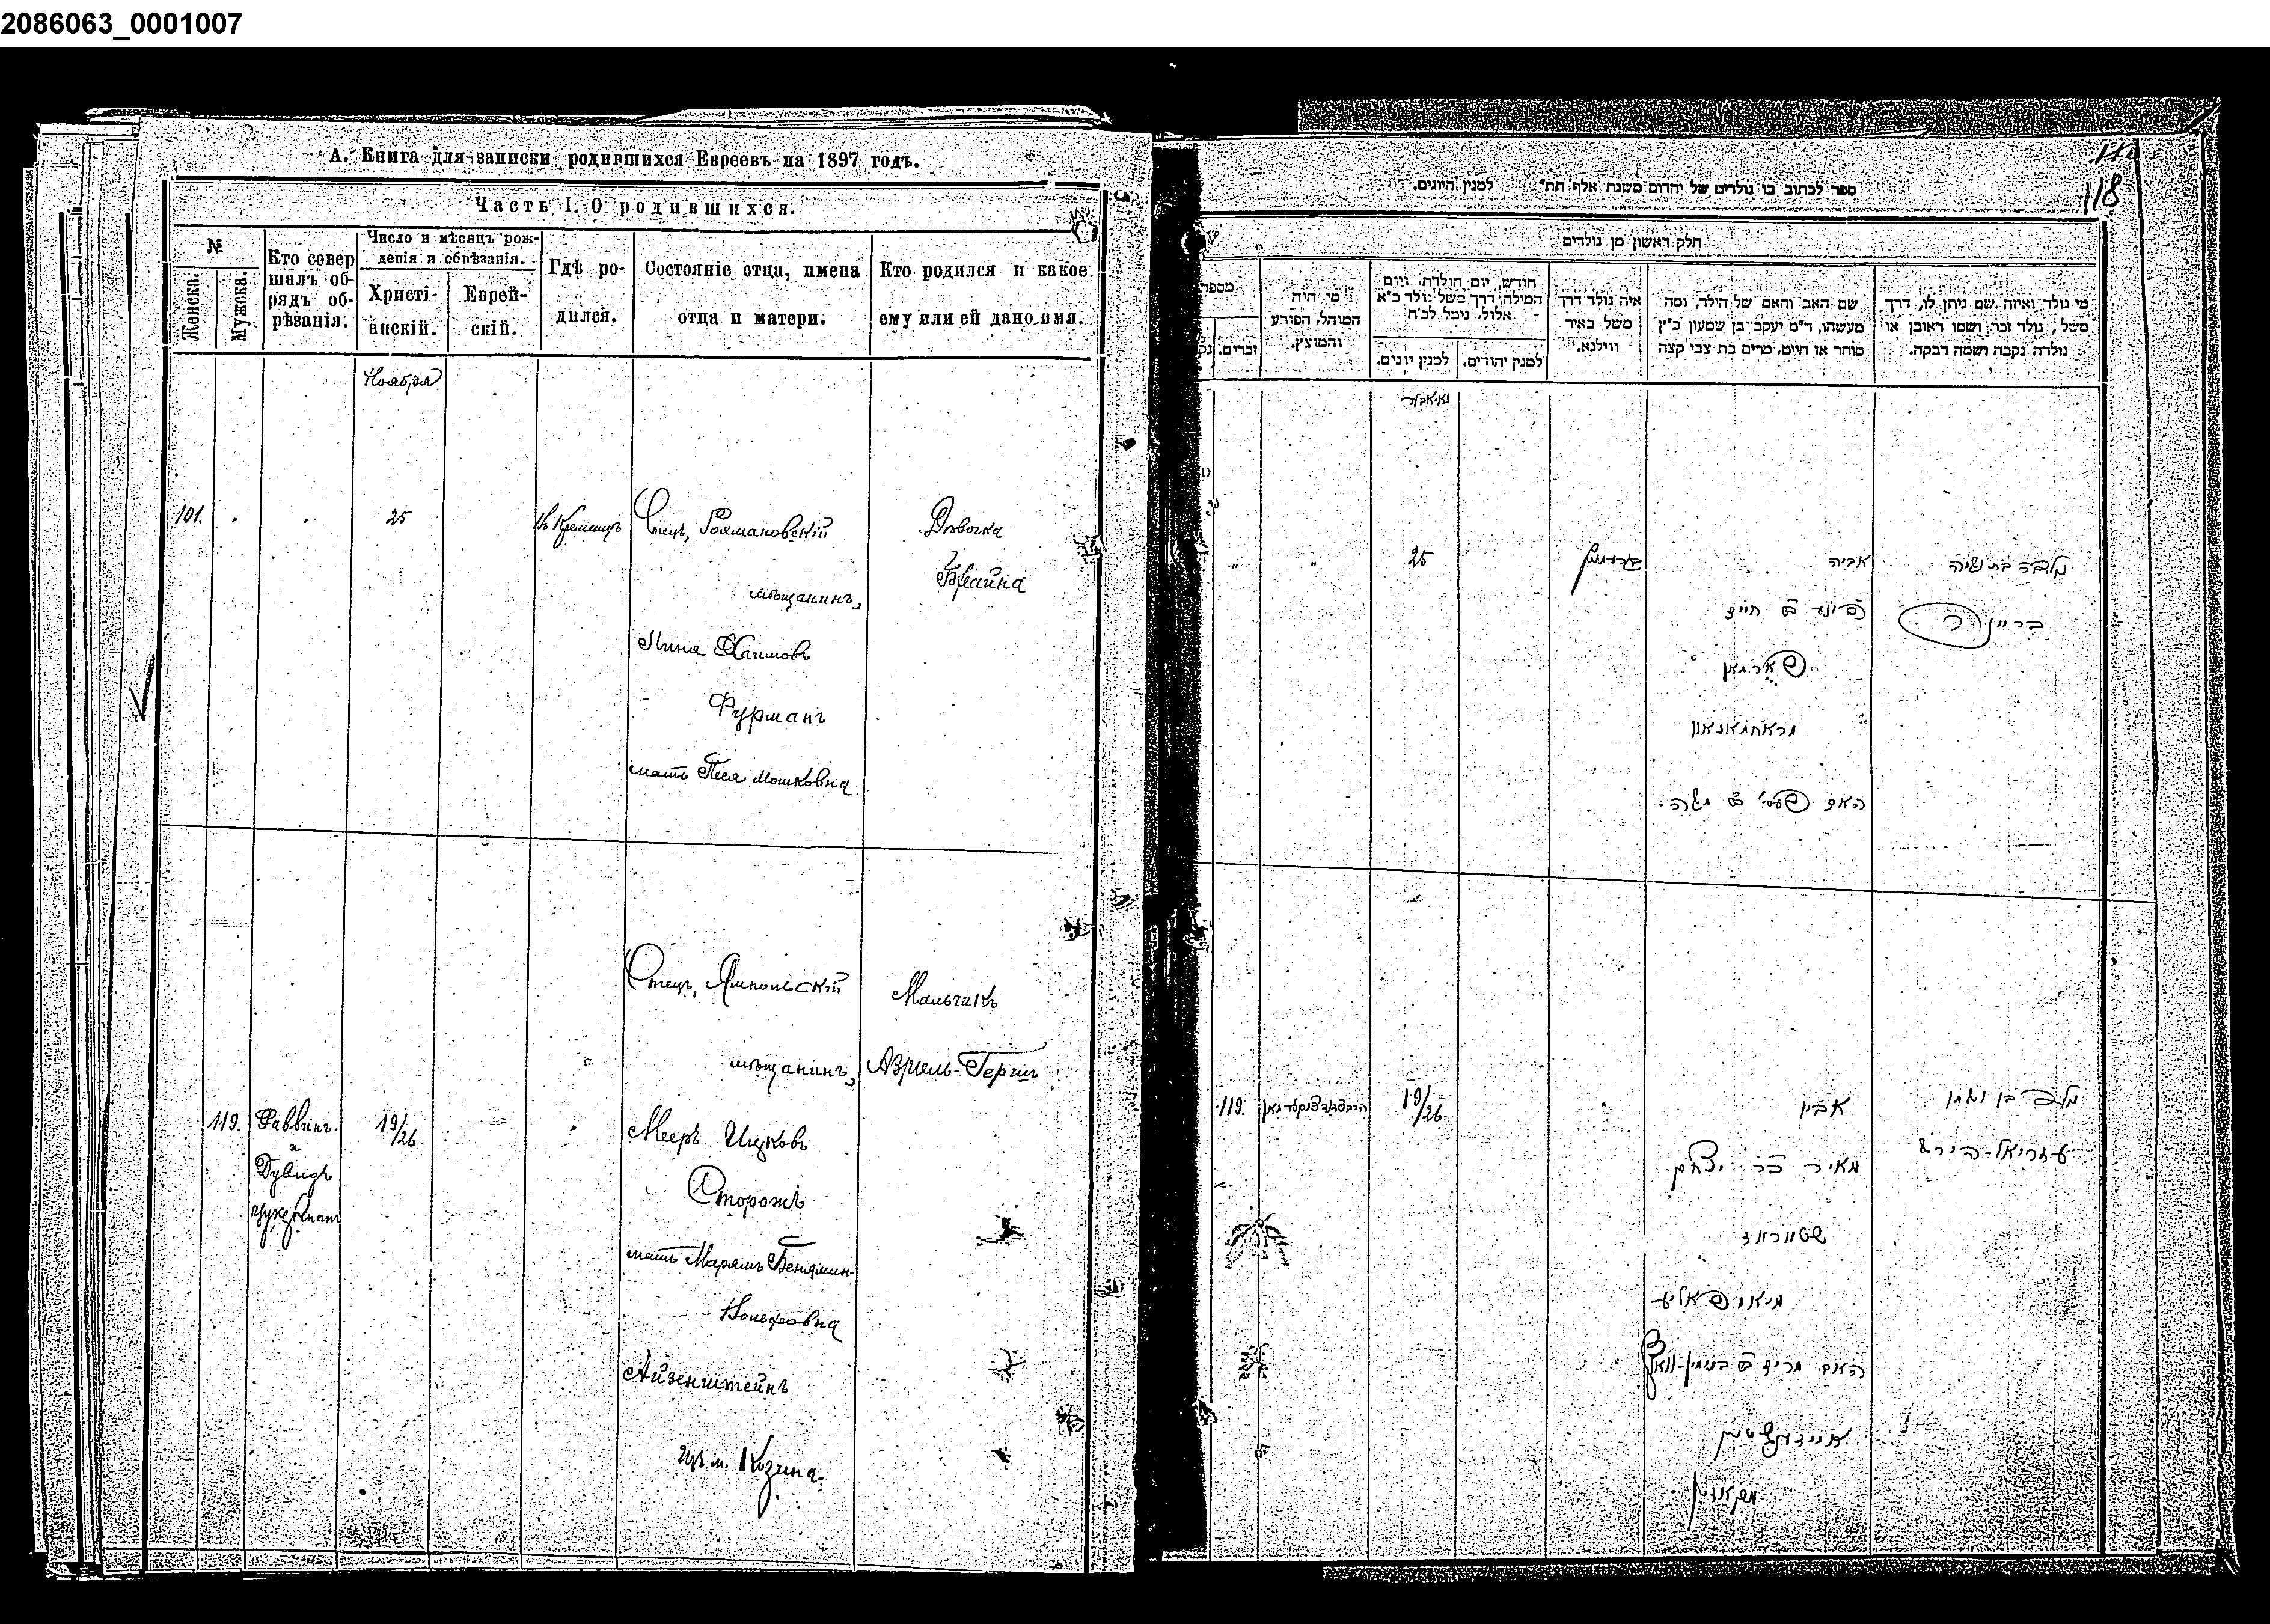 2086063_0001007
А. Книга для записки родившихся Евреевъ на 1897 годъ.
Часть I. О родившихся.
№
Женска.
Мужска.
Кто совер
шалъ об-
рядъ об-
рѣзанія.
Число и мѣсяцъ рож-
денія и обрѣзанія.
Христі-
анскій.
Еврей-
скій.
Гдѣ ро-
дился.
Состояніе отца, имена
отца и матери.
Кто родился и какое
ему или ей дано имя.
Ноября
101.
25
Кременцѣ
Отецъ, Рохмановскій
мѣщанинъ,
Пиня Хаимовъ
Фурманъ
мать Песя Мошковна
Дѣвочка
Брайна
119.
Раввинъ
и
Дувидъ
Цукерманъ
19/26
Отецъ, Ямпольскій
мѣщанинъ,
Мееръ Ицковъ
Сторожъ
мать Марямъ Бенямин-
Вольфовна
Айзенштейнъ
изъ м. Козина.
Мальчикъ
Азриель-Герш
118
ספר לכתוב בו נולדים של יהדום משנת אלף תת" למנין היונים.
חלק ראשון מן נולדים
מספר
זכרים.
מי היה
המוהל, הפורע
והמוצץ.
חודש, יום הולדת, ויום
המילה, דרך משל נולד כ"א
אלול, נימל לכ"ח
למנין יונים.
למנין יהודים.
איה נולד דרך
משל באיר
ווילנא.
שם האב והאם של הילד, ומה
מעשהו, ד"מ יעקב בן שמעון כ"ץ
סוחר או חייט, מרים בת צבי קצה
מי נולד ואיזה שם ניתן לו, דרך
משל, נולד זכר ושמו ראובן או
נולדה נקבה ושמה רבקה.
נאיאבער
25
אביה
פינע ב חיים
פארמאן
מראחמאנאוו
האם פעסי ב משה
נולדה בת ושמה
בריינה
119.
19/26
אביו
מאיר בר יצחק
שטאראז
מיאמפאליע
האם מרים ב בנימין-וואלף
אייזענשטיין
מקאזין
נולד בן ושמו
עזריאל-הירש